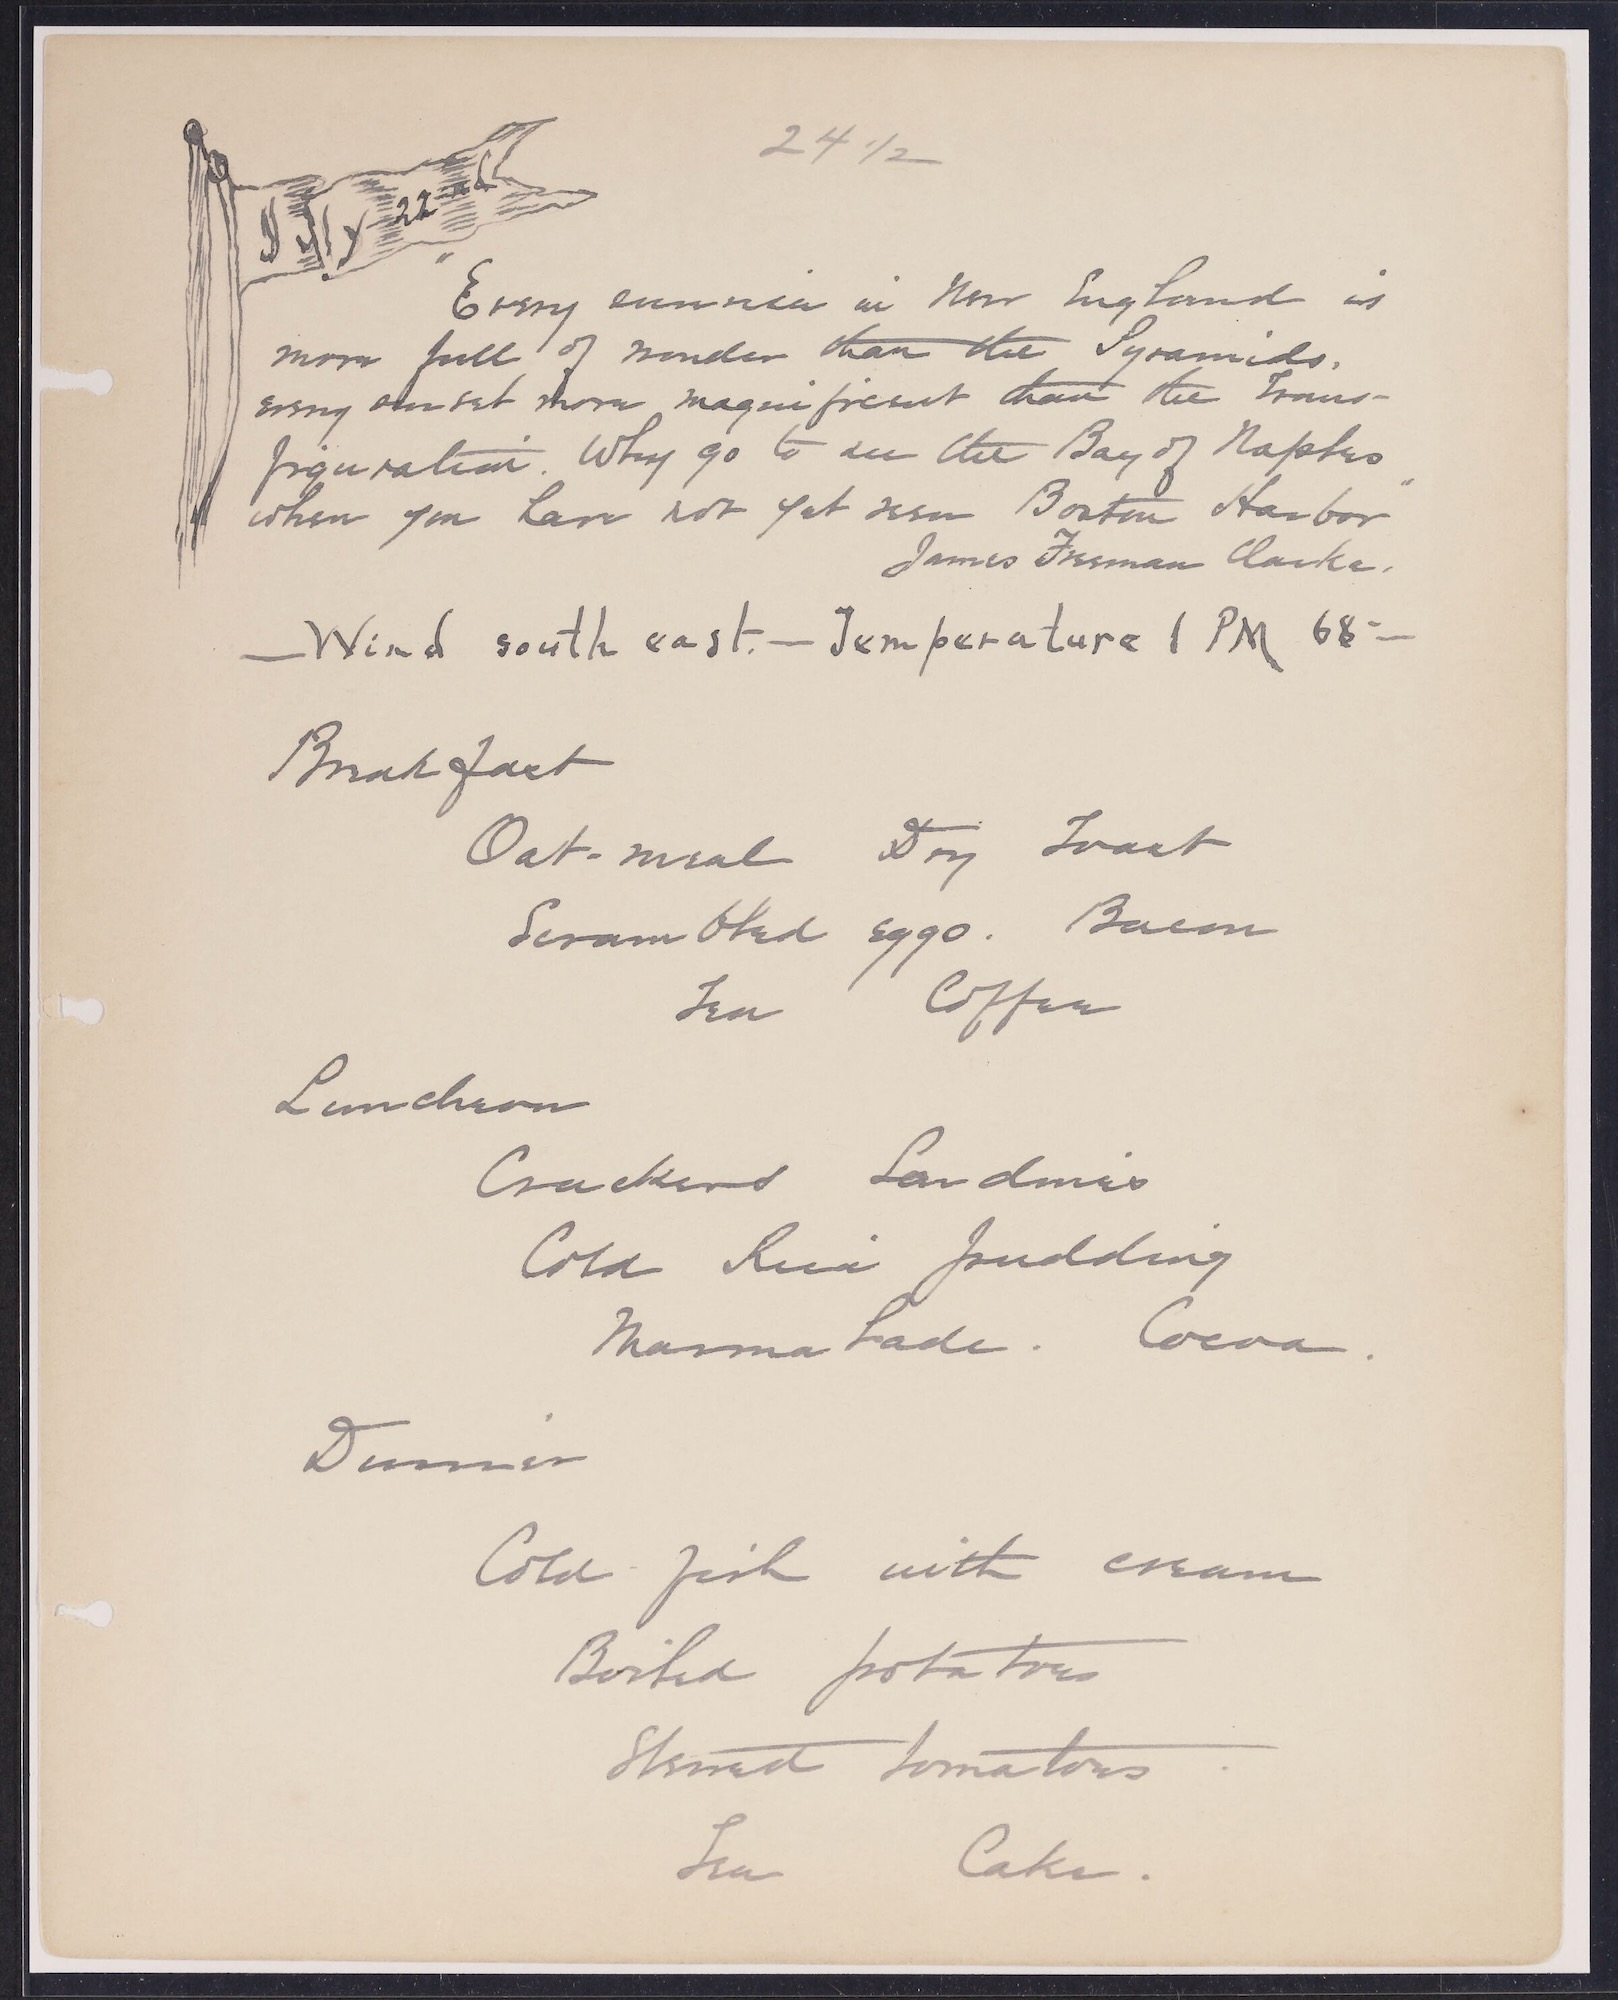 24 1/2
July 22nd
"Every sunrise in New England is
more full of wonder than the Pyramids,
every sunset more magnificent than the Trans-
figuration. Why go to see the Bay of Naples
when you have not yet seen Boston Harbor"
James Freeman Clarke.
—Wind south east.—Temperature 1 PM 68°—
Breakfast
Oat-meal Dry Toast
Scrambled eggs. Bacon
Tea Coffee
Luncheon
Crackers Sardines
Cold Rice pudding
Marmalade. Cocoa.
Dinner
Cold fish with cream
Boiled potatoes
Stewed tomatoes.
Tea Cake.